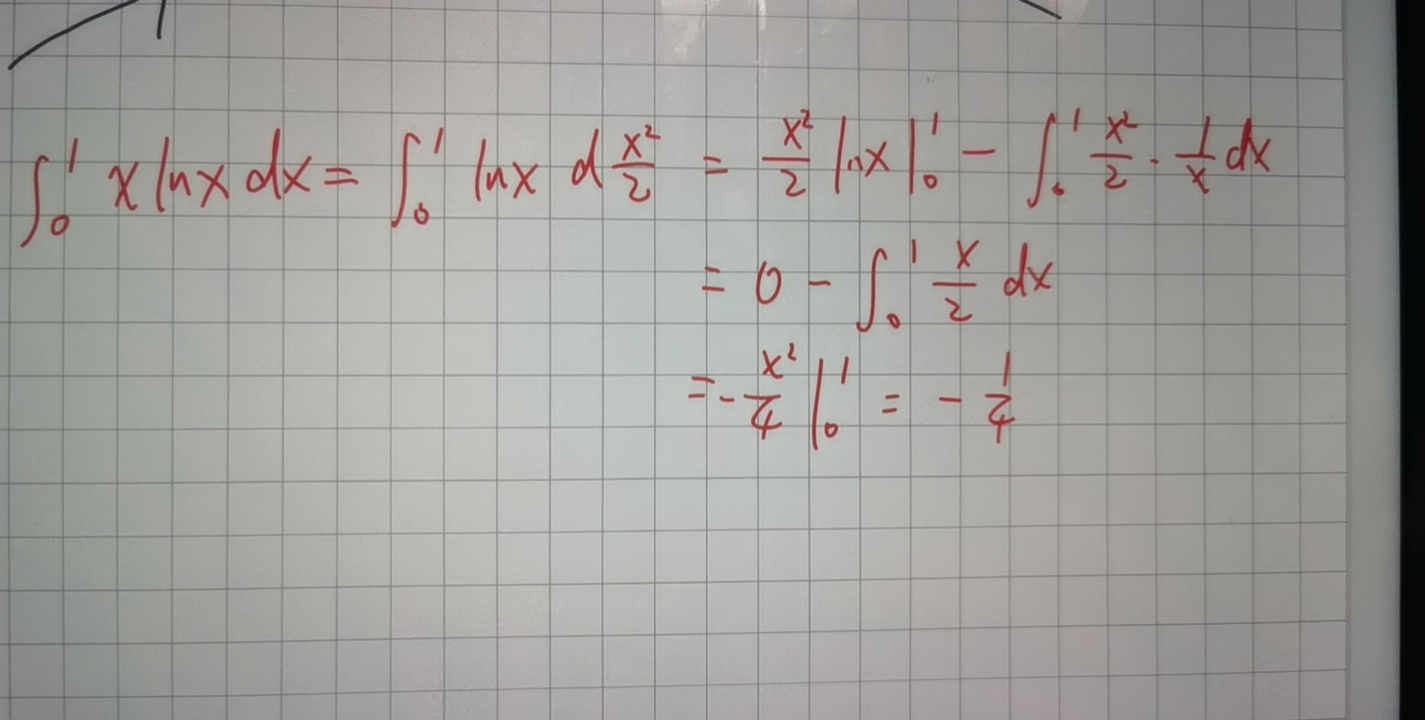 ∫₀¹ x ln x dx = ∫₀¹ ln x d x²/2 = x²/2 ln x |₀¹ − ∫₀¹ x²/2 · 1/x dx
= 0 − ∫₀¹ x/2 dx
= − x²/4 |₀¹ = − 1/4